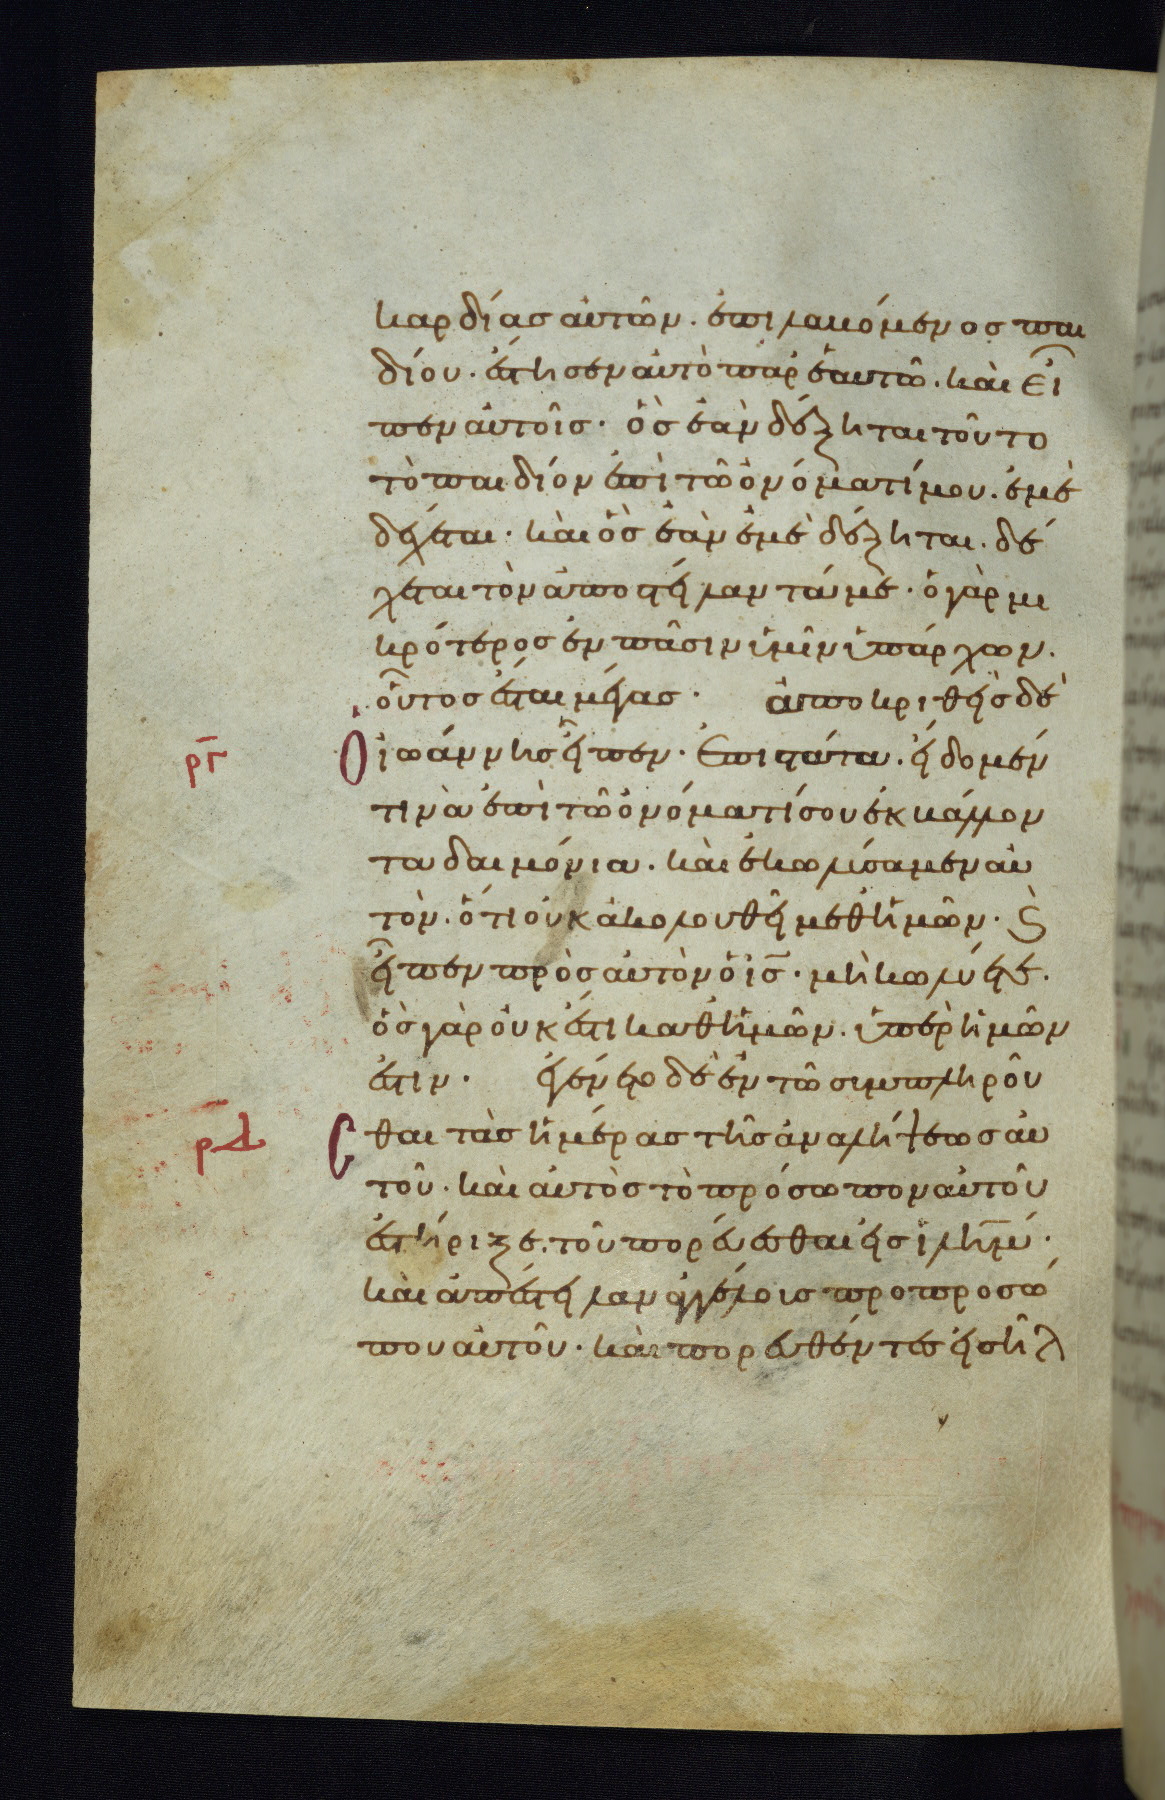 καρδίας αυτῶν. ἐπιλακόμενος παι
δίου. ἔστησεν αὐτὸ παρ ἑαυτῶ. καὶ εἶ
πεν αὐτοῖς. ὃς ἐὰν δέξηται τοῦτο
τὸ παιδίον ἐπὶ τῶ ὀνόματί μου. ἐμὲ
δέχεται. καὶ ὃς ἐὰν ἐμὲ δέξηται. δέ
χεται τὸν ἀποστείλαντά με. ὁ γὰρ μι
κρότερος ἐν πᾶσιν ὑμῖν ὑπάρχων.
οὗτος ἔσται μέγας. ἀποκριθεὶς δὲ
ργ Ο ἰωάννης εἶπεν. ἐπιστάτα. εἴδομέν
τινα ἐπὶ τῶ ὀνόματί σου ἐκβάλλον
τα δαιμόνια. καὶ ἐκωλύσαμεν αὐ
τὸν. ὅτι οὐκ ἀκολουθεῖ μεθ ἡμῶν. ϗ
εἶπεν πρὸς αὐτὸν ὁ ις. μὴ κωλύετε.
ὃς γὰρ οὐκ ἔστι καθ ἡμῶν. ὑπὲρ ἡμῶν
ἐστιν. ἐγένετο δὲ ἐν τῶ συμπληροῦ
ρδ Ε σθαι τὰς ἡμέρας τῆς ἀναλήψεως αὐ
τοῦ. καὶ αὐτὸς τὸ πρόσωπον αὐτοῦ
ἐστήριξε. τοῦ πορεύεσθαι εἰς ἱλημ.
καὶ ἀπέστειλαν ἀγγέλοις προ προσώ
που αὐτοῦ. καὶ πορευθέντες εἰσῆλ